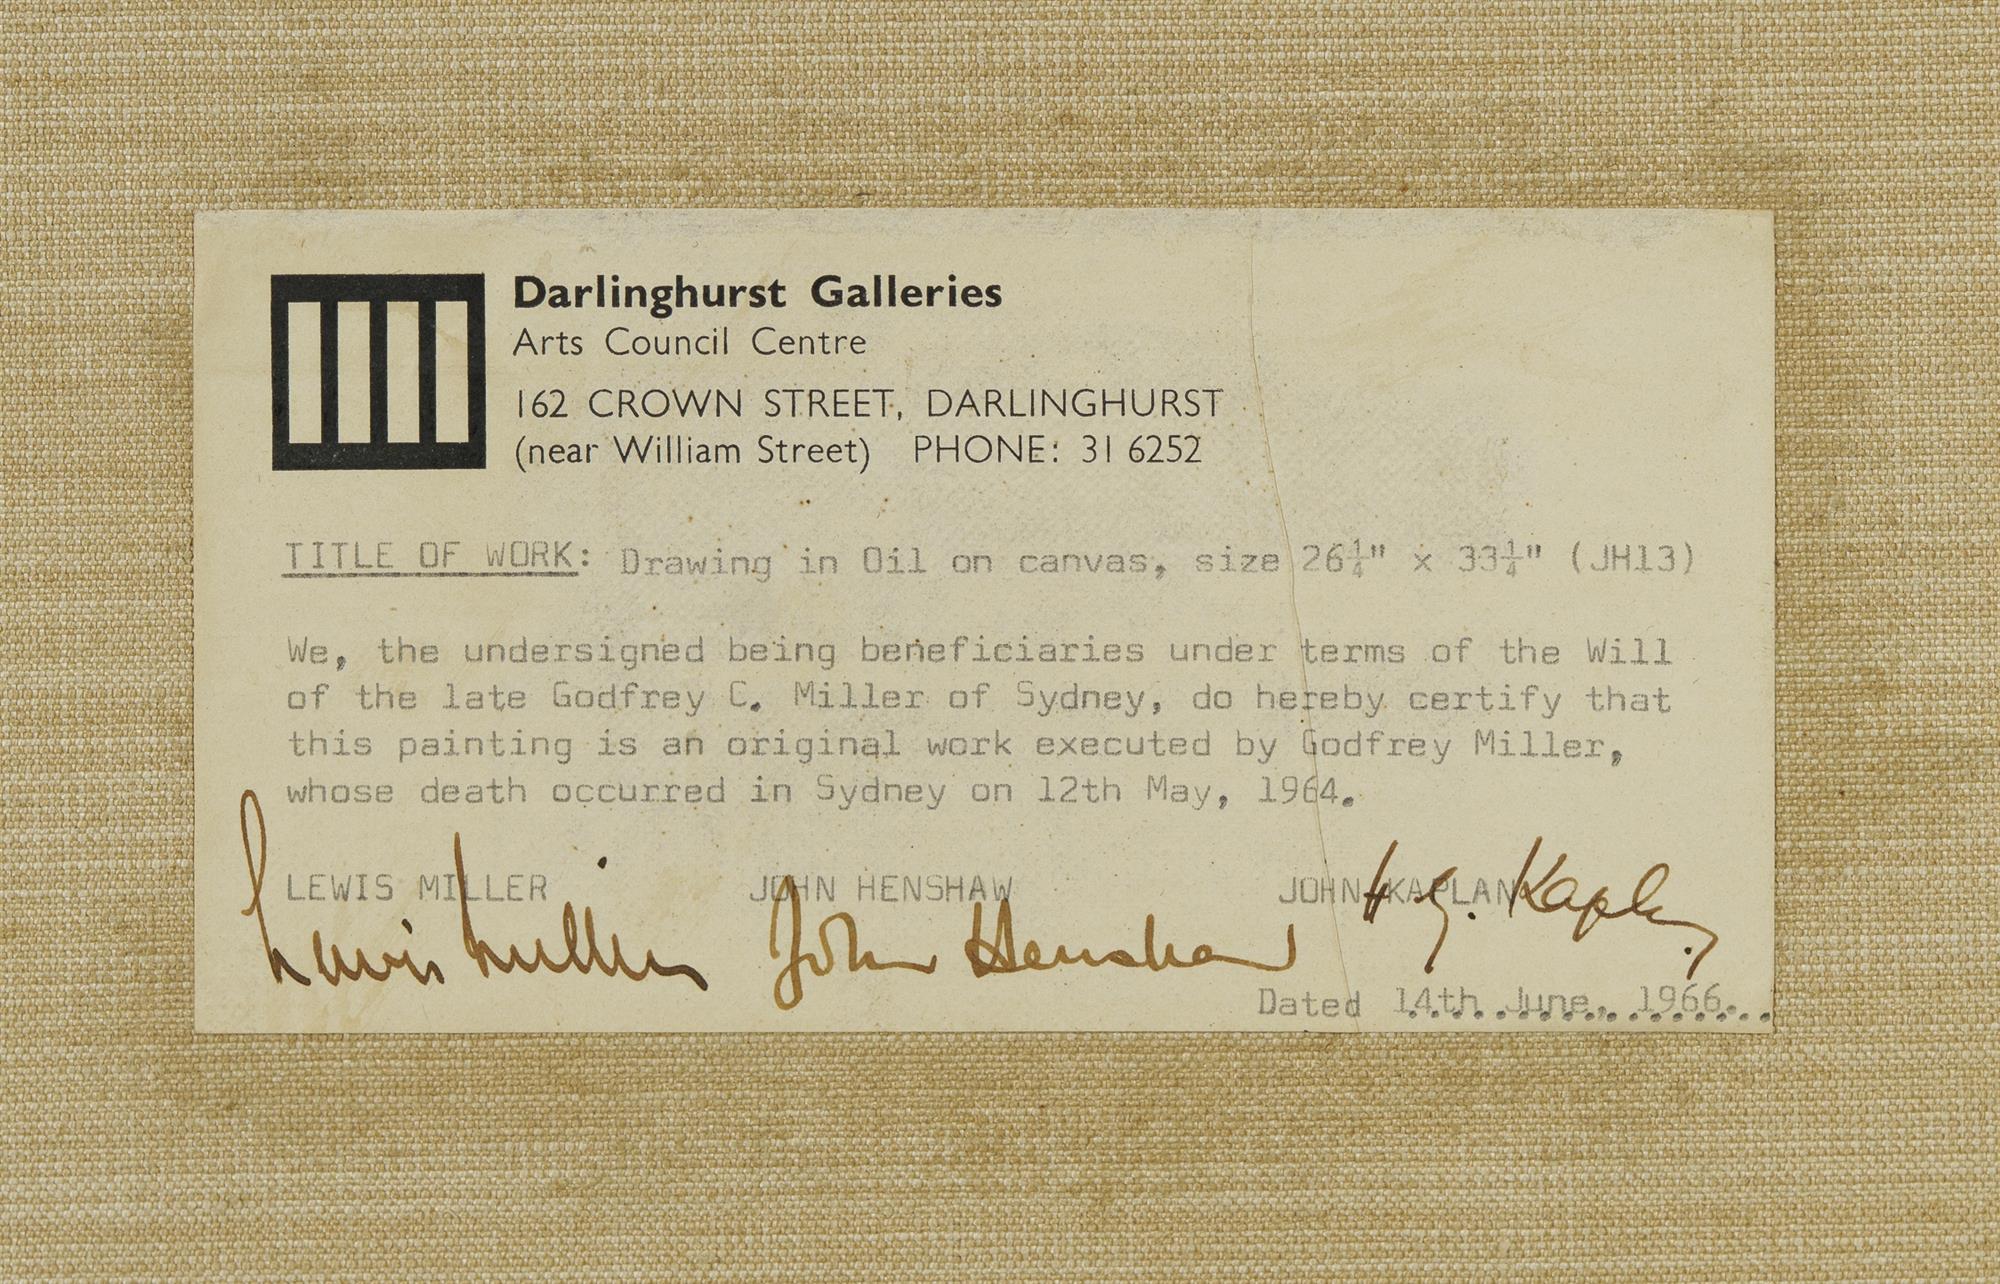 Darlinghurst Galleries
Arts Council Centre
162 CROWN STREET, DARLINGHURST
(near William Street) PHONE: 31 6252
TITLE OF WORK: Drawing in Oil on canvas, size 26¼" x 33¼" (JH13)
We, the undersigned being beneficiaries under terms of the Will
of the late Godfrey C. Miller of Sydney, do hereby certify that
this painting is an original work executed by Godfrey Miller,
whose death occurred in Sydney on 12th May, 1964.
LEWIS MILLER JOHN HENSHAW JOHN KAPLAN
Lewis Miller John Henshaw H.G. Kaplan
Dated 14th June, 1966.